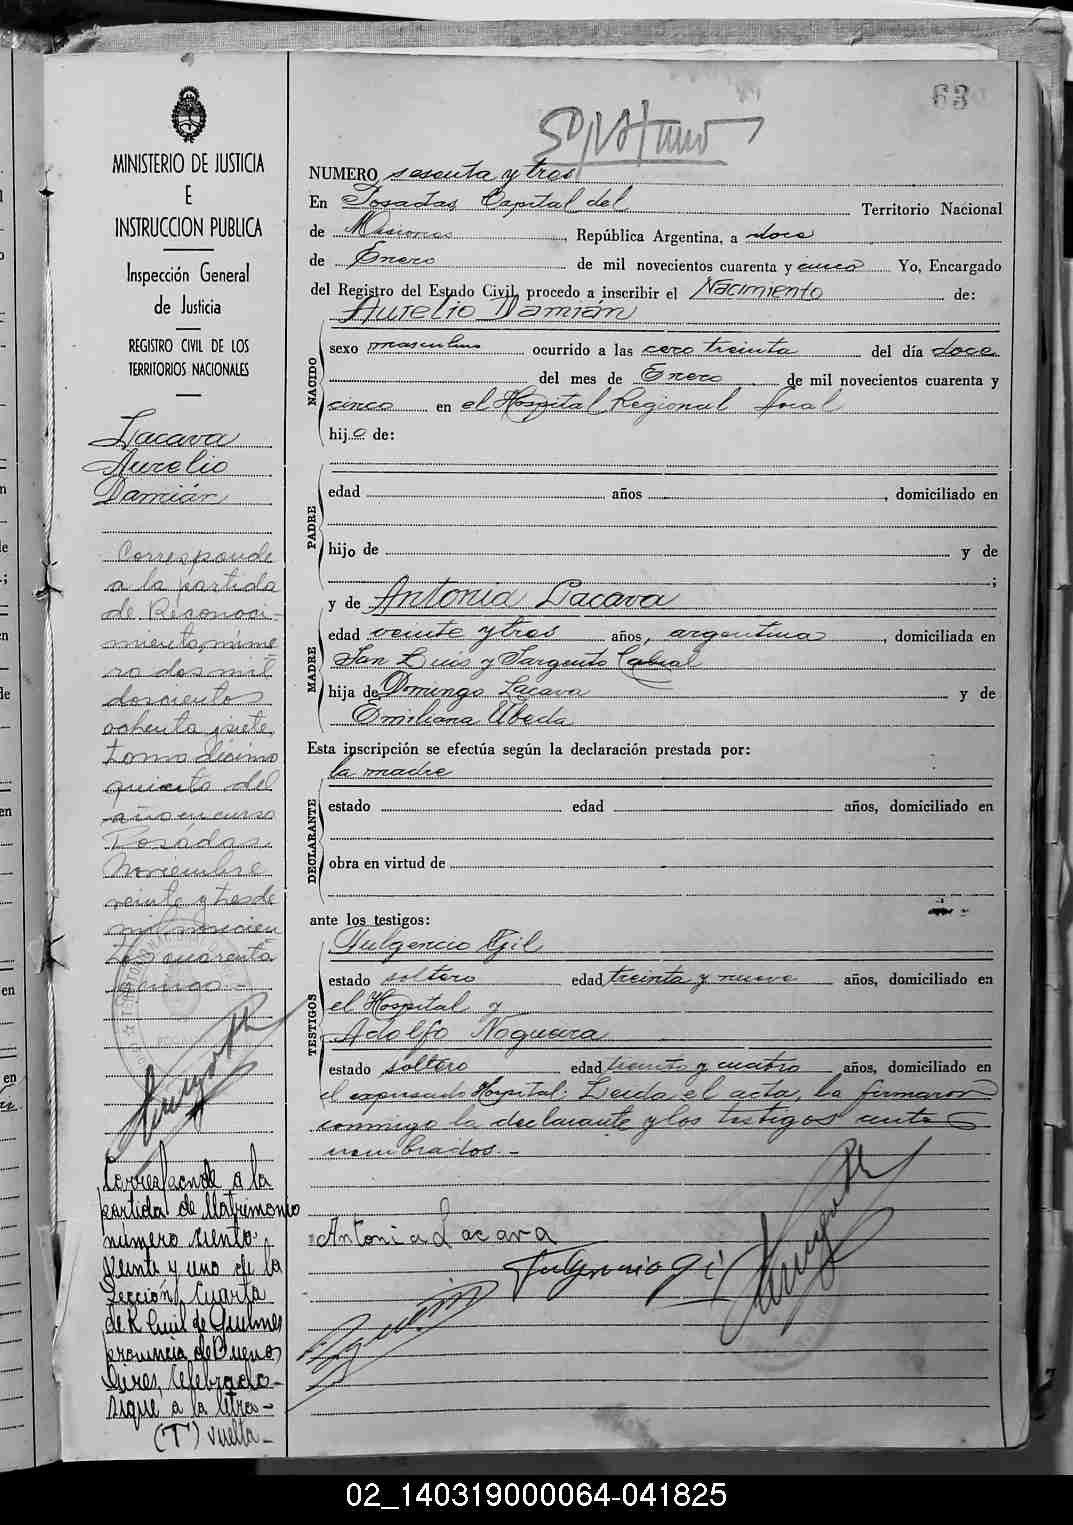 63
MINISTERIO DE JUSTICIA
E
INSTRUCCION PUBLICA
Inspección General
de Justicia
REGISTRO CIVIL DE LOS
TERRITORIOS NACIONALES
Lacava
Aurelio
Damián
Corresponde
a la partida
de Reconoci-
miento, núme
ro dos mil
doscientos
ochenta y siete,
tomo décimo
quinto del
año en curso
Posadas
Noviembre
veinte y tres de
mil novecien
tos cuarenta
y cinco.-
Corresponde a la
partida de Matrimonio
número ciento
veinte y uno de la
Sección Cuarta
de R. Civil de Quilmes
provincia de Buenos
Aires, celebrado-
sigue a la letra-
(T) vuelta-
NUMERO sesenta y tres
En Posadas Capital del Territorio Nacional
de Misiones, República Argentina, a doce
de Enero de mil novecientos cuarenta y cinco Yo, Encargado
del Registro del Estado Civil, procedo a inscribir el Nacimiento de:
Aurelio Damián
NACIDO
sexo masculino ocurrido a las cero treinta del día doce
del mes de Enero de mil novecientos cuarenta y
cinco en el Hospital Regional local
hijo de:
PADRE
edad años, domiciliado en
hijo de y de
;
y de Antonia Lacava
MADRE
edad veinte y tres años, argentina, domiciliada en
San Luis y Sargento Cabral
hija de Domingo Lacava y de
Emiliana Ubeda
Esta inscripción se efectúa según la declaración prestada por:
la madre
DECLARANTE
estado edad años, domiciliado en
obra en virtud de
ante los testigos:
TESTIGOS
Fulgencio Gil
estado soltero edad treinta y nueve años, domiciliado en
el Hospital y
Adolfo Noguera
estado soltero edad treinta y cuatro años, domiciliado en
el expresado Hospital. Leida el acta, la firmaron
conmigo la declarante y los testigos ante
nombrados.-
Antonia Lacava
Fulgencio Gil
02_140319000064-041825